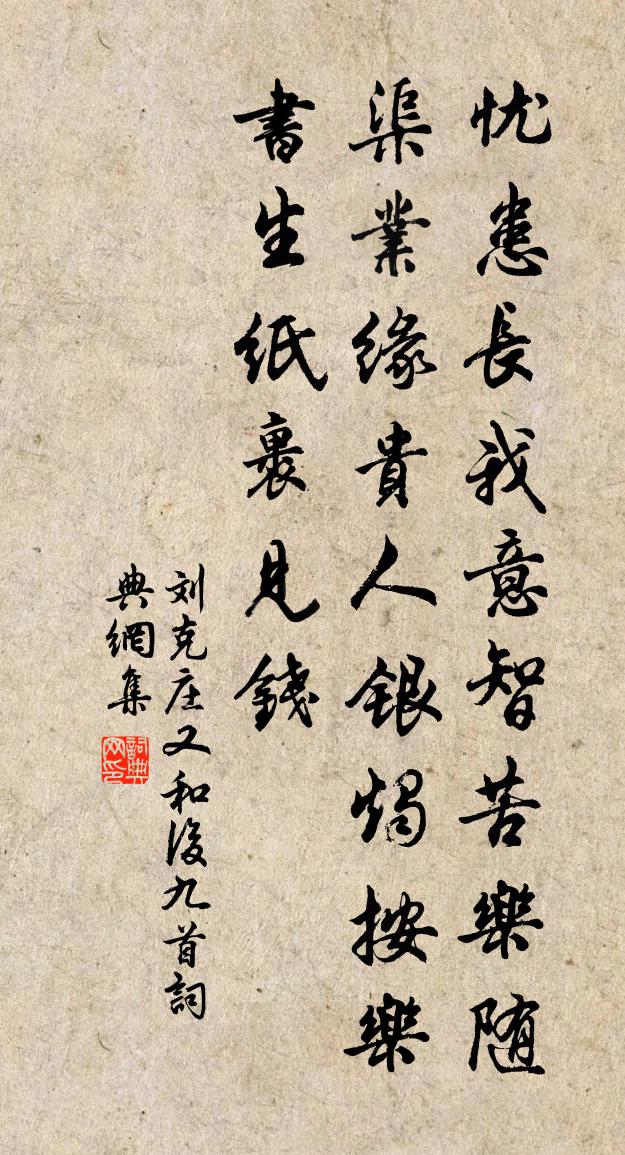 忧患長我意智苦樂随
渠業緣貴人銀燭按樂
書生纸裹見錢
刘克庄又和後九首詞
典網集
詞典網印